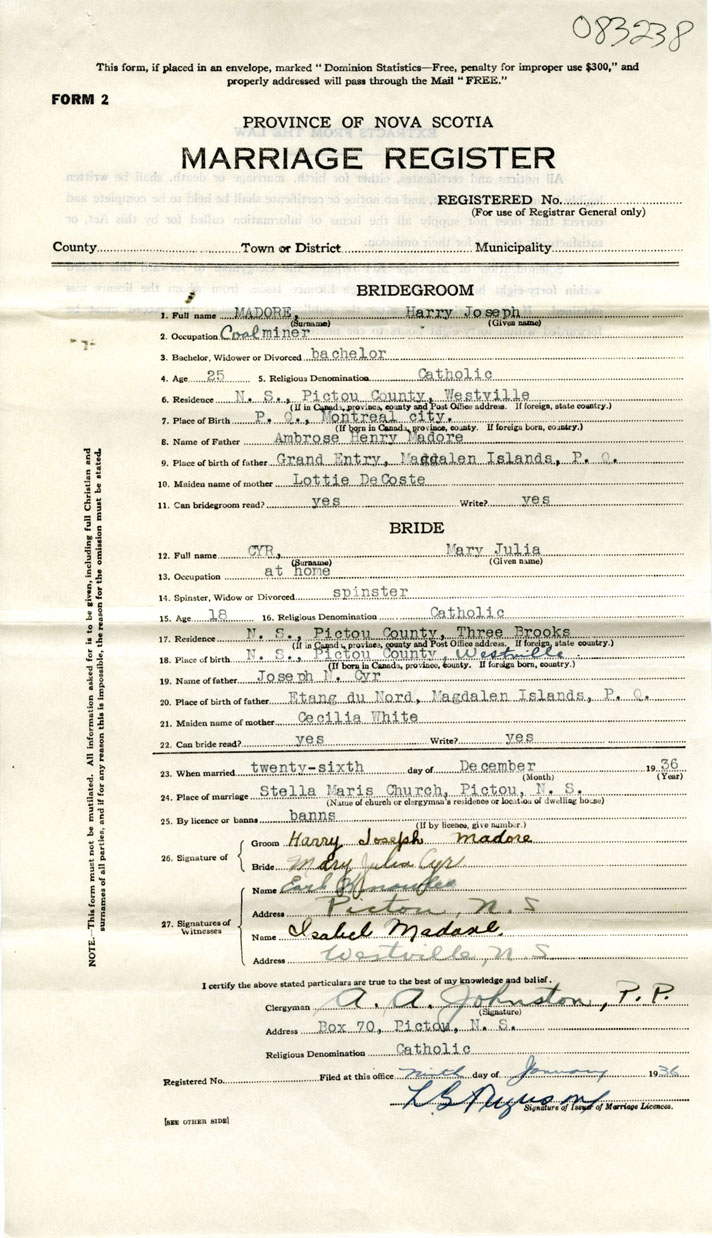 083238
This form, if placed in an envelope, marked "Dominion Statistics—Free, penalty for improper use $300," and
properly addressed will pass through the Mail "FREE."
FORM 2
PROVINCE OF NOVA SCOTIA
MARRIAGE REGISTER
REGISTERED No.
(For use of Registrar General only)
County Town or District Municipality
BRIDEGROOM
1. Full name MADORE, Harry Joseph
(Surname) (Given name)
2. Occupation Coal miner
3. Bachelor, Widower or Divorced bachelor
4. Age 25 5. Religious Denomination Catholic
6. Residence N. S., Pictou County, Westville
(If in Canada, province, county and Post Office address. If foreign, state country.)
7. Place of Birth P. Q., Montreal city.
(If born in Canada, province, county. If foreign born, country.)
8. Name of Father Ambrose Henry Madore
9. Place of birth of father Grand Entry, Magdalen Islands, P. Q.
10. Maiden name of mother Lottie DeCoste
11. Can bridegroom read? yes Write? yes
BRIDE
12. Full name CYR, Mary Julia
(Surname) (Given name)
13. Occupation at home
14. Spinster, Widow or Divorced spinster
15. Age 18 16. Religious Denomination Catholic
17. Residence N. S., Pictou County, Three Brooks
(If in Canada, province, county and Post Office address. If foreign, state country.)
18. Place of birth N. S., Pictou County, Westville
(If born in Canada, province, county. If foreign born, country.)
19. Name of father Joseph N. Cyr
20. Place of birth of father Etang du Nord, Magdalen Islands, P. Q.
21. Maiden name of mother Cecilia White
22. Can bride read? yes Write? yes
23. When married twenty-sixth day of December 1936
(Month) (Year)
24. Place of marriage Stella Maris Church, Pictou, N. S.
(Name of church or clergyman's residence or location of dwelling house)
25. By licence or banns banns
(If by licence, give number.)
26. Signature of
Groom Harry Joseph Madore
Bride Mary Julia Cyr
27. Signatures of Witnesses
Name Earl
Address Pictou, N. S
Name Isabel Madore
Address Westville, N S
I certify the above stated particulars are true to the best of my knowledge and belief.
Clergyman A. A. Johnston, P. P.
(Signature)
Address Box 70, Pictou, N. S.
Religious Denomination Catholic
Registered No. Filed at this office ninth day of January 1936
Signature of Issuer of Marriage Licences.
[SEE OTHER SIDE]
NOTE.—This form must not be mutilated. All information asked for is to be given, including full Christian and
surnames of all parties, and if for any reason this is impossible, the reason for the omission must be stated.